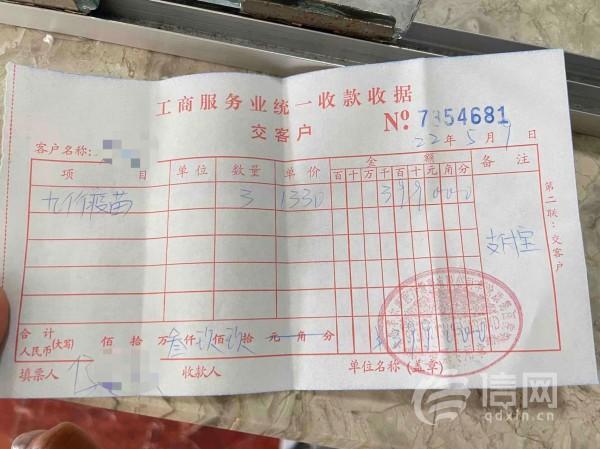 工商服务业统一收款收据
交客户 Nº 7354681
22年5月9日
客户名称:
项目 单位 数量 单价 金额 备注
百十万千百十元角分
九价疫苗 3 1330 3990.00
支付宝
第二联:交客户
合计人民币(大写) 佰 拾 万叁仟玖佰玖拾 元 角 分 ¥3990.00
填票人 收款人 单位名称(盖章)
信网
qdxin.cn